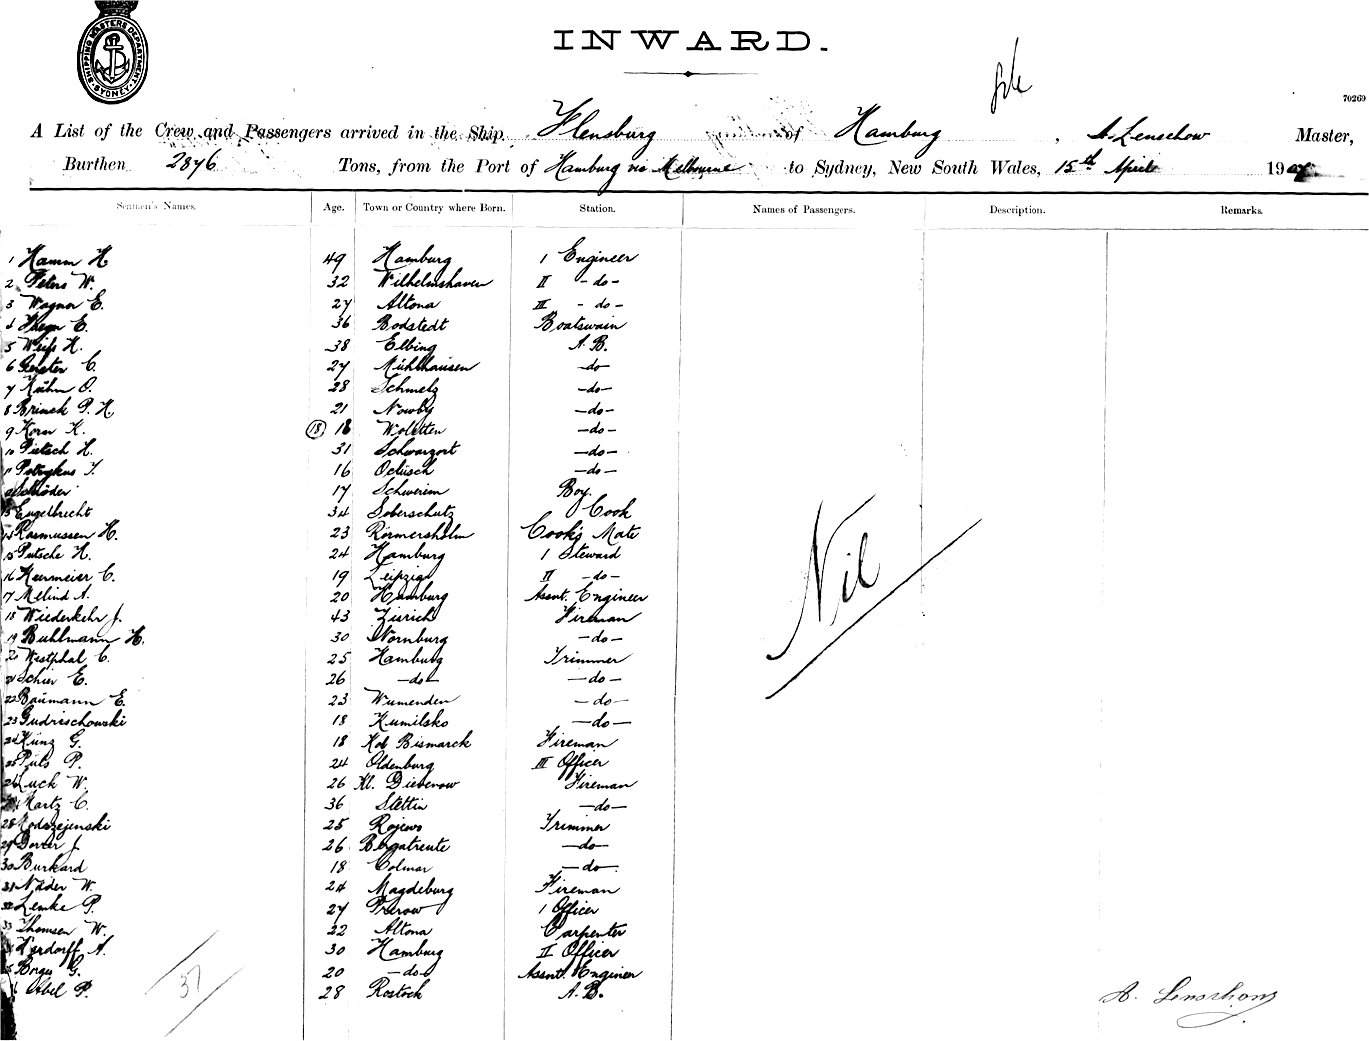 SHIPPING MASTERS DEPARTMENT. SYDNEY.
INWARD.
70269
A List of the Crew and Passengers arrived in the Ship Flensburg of Hamburg, A. Lenschow Master,
Burthen 2876 Tons, from the Port of Hamburg via Melbourne to Sydney, New South Wales, 15th April 190
Seamen's Names. Age. Town or Country where Born. Station. Names of Passengers. Description. Remarks.
1 Hamm H. 49 Hamburg 1 Engineer
2 Peters W. 32 Wilhelmshaven II -do-
3 Wagner E. 27 Altona III -do-
4 E. 36 Bodstedt Boatswain
5 Weiss H. 38 Elbing A.B.
6 Gerster C. 27 Mühlhausen -do-
7 Kühn O. 28 Schmelz -do-
8 Brinck P. H. 21 Nowby -do-
9 Korn K. (18) 18 Woletten -do-
10 Pietsch H. 31 Schwarzort -do-
11 16 -do-
12 Schröder 17 Schwerin Boy.
13 Engelbrecht 34 Soberschutz Cook
14 Rasmussen H. 23 Rörmersholm Cook's Mate
15 Putsche H. 24 Hamburg 1 Steward
16 Meermeier C. 19 Leipzig II -do-
17 Melind A. 20 Hamburg Assnt. Engineer
18 Wiederkehr J. 43 Zürich Fireman
19 Buhlmann H. 30 Nörnburg -do-
20 Westphal C. 25 Hamburg Trimmer
21 Schier E. 26 -do- -do-
22 Baumann E. 23 Wumenden -do-
23 Gudrischowski 18 Kumilsko -do-
24 Künz G. 18 Kol Bismarck Fireman
25 Puls P. 24 Oldenburg III Officer
26 Luck W. 26 Kl. Dievenow Fireman
Martz C. 36 Stettin -do-
28 Modszejenski 25 Rojewo Trimmer
29 J. 26 Bergatreute -do-
30 Burkard 18 Colmar -do-
31 Näder W. 24 Magdeburg Fireman
32 Lemke P. 27 Prerow 1 Officer
33 Thomsen W. 22 Altona Carpenter
A. 30 Hamburg II Officer
Borges G. 20 -do- Assnt. Engineer
Abel P. 28 Rostock A.B.
Nil
37
A. Lenschow